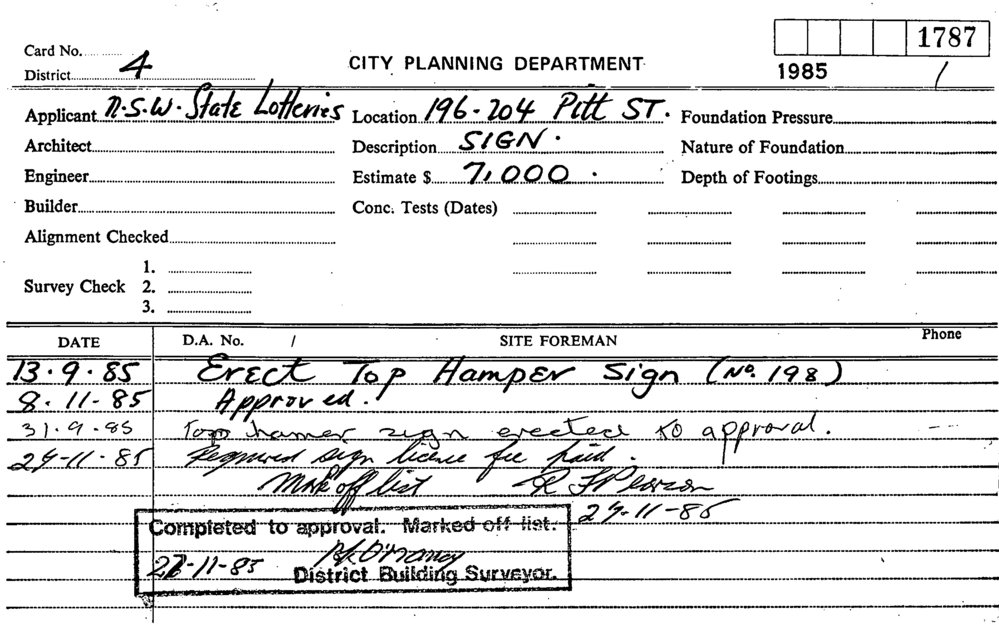 Card No.
1787
District 4
CITY PLANNING DEPARTMENT
1985 /
Applicant N.S.W. State Lotteries Location 196-204 Pitt ST. Foundation Pressure
Architect Description SIGN. Nature of Foundation
Engineer Estimate $ 7,000. Depth of Footings
Builder Conc. Tests (Dates)
Alignment Checked
1.
Survey Check 2.
3.
DATE D.A. No. / SITE FOREMAN Phone
13.9.85 Erect Top Hamper Sign (No. 198)
8.11-85 Approved.
31.9.85 Top hamer sign erected to approval.
29-11-85 Required sign license fee paid.
Mark off list R F Pearson
29-11-85
Completed to approval. Marked off list.
-11-85
District Building Surveyor.